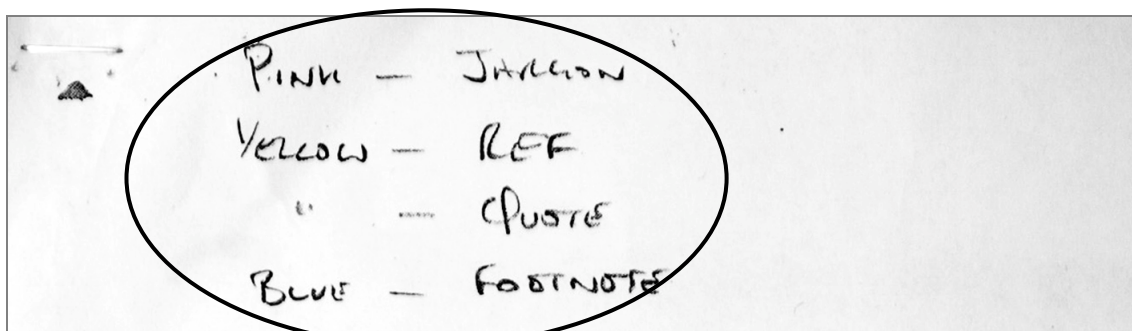 PINK — JARGON
YELLOW — REF
" — QUOTE
BLUE — FOOTNOTE